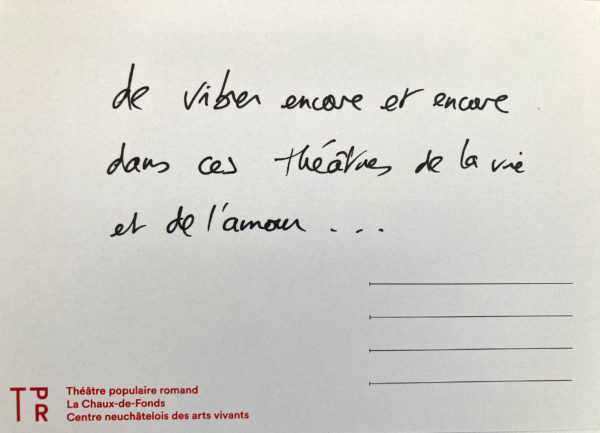 de vibrer encore et encore
dans ces théâtres de la vie
et de l'amour ...
TPR
Théâtre populaire romand
La Chaux-de-Fonds
Centre neuchâtelois des arts vivants